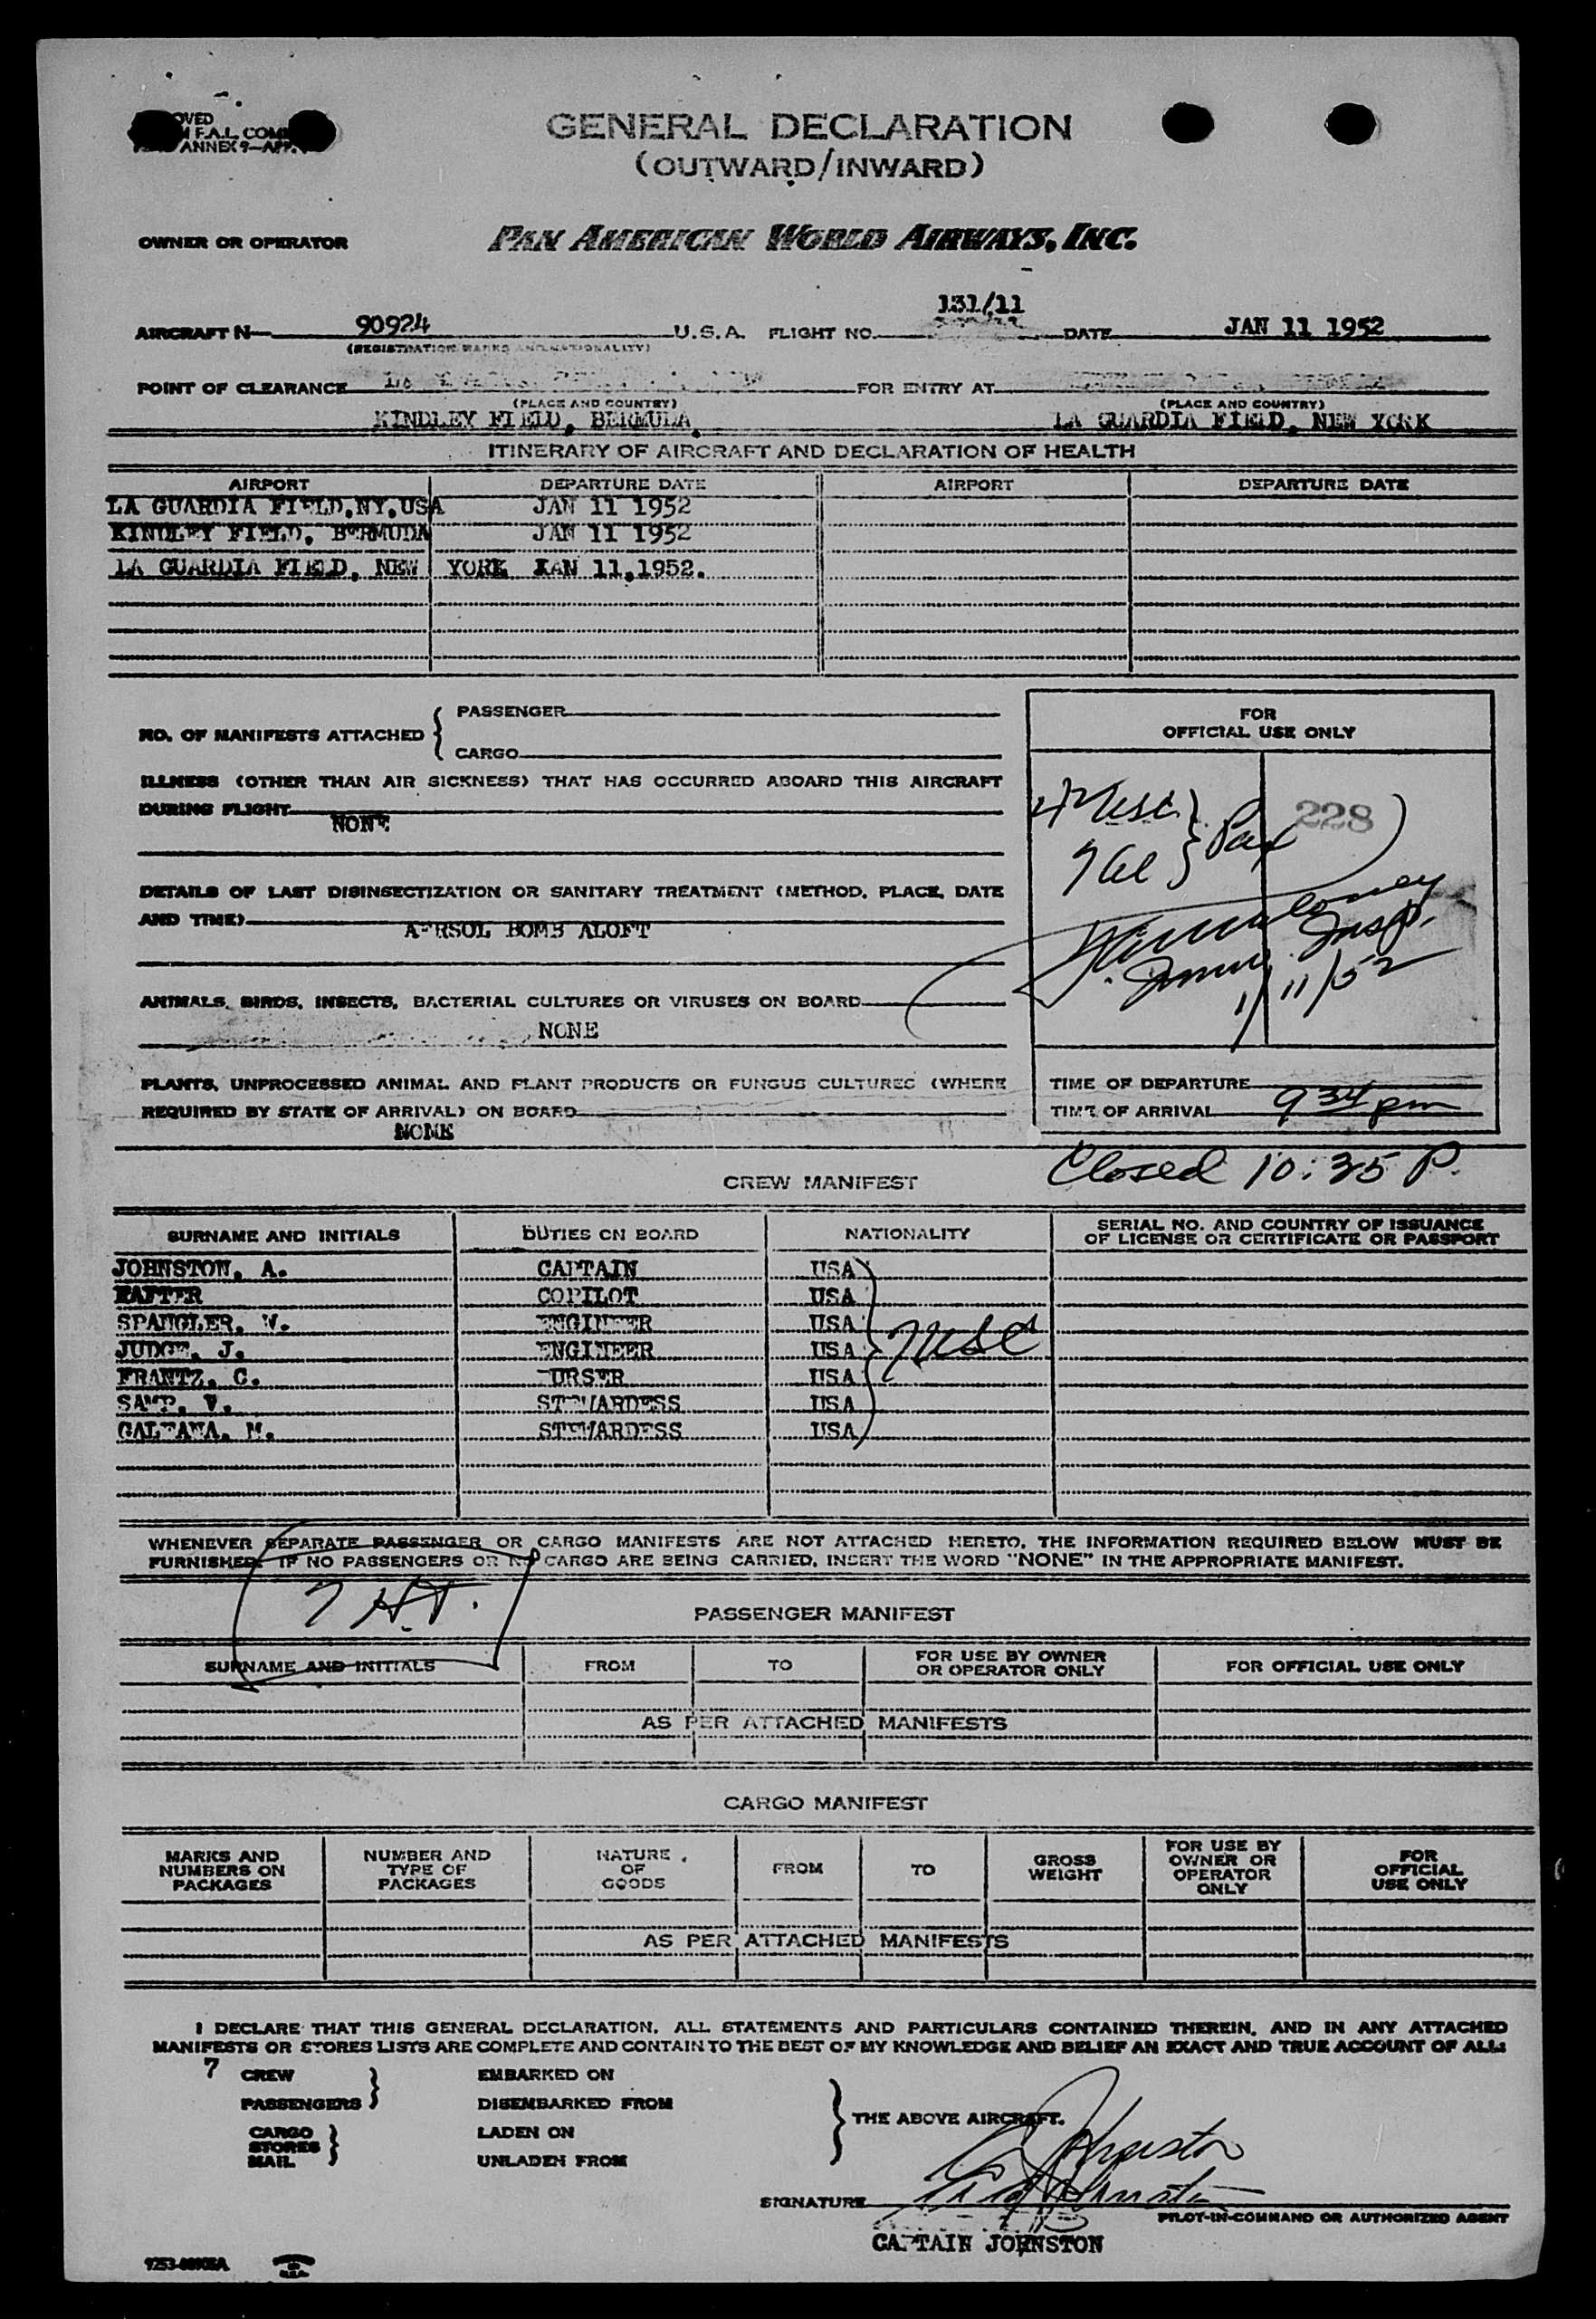 OVED
F.A.L. COM
ANNEX 9—APP.
GENERAL DECLARATION
(OUTWARD/INWARD)
OWNER OR OPERATOR PAN AMERICAN WORLD AIRWAYS, INC.
131/11
AIRCRAFT N— 90924 U.S.A. FLIGHT NO. DATE JAN 11 1952
(REGISTRATION MARKS AND NATIONALITY)
POINT OF CLEARANCE FOR ENTRY AT
(PLACE AND COUNTRY) (PLACE AND COUNTRY)
KINDLEY FIELD, BERMUDA, LA GUARDIA FIELD, NEW YORK
ITINERARY OF AIRCRAFT AND DECLARATION OF HEALTH
AIRPORT DEPARTURE DATE AIRPORT DEPARTURE DATE
LA GUARDIA FIELD,NY,USA JAN 11 1952
KINDLEY FIELD, BERMUDA JAN 11 1952
LA GUARDIA FIELD, NEW YORK KAN 11,1952.
NO. OF MANIFESTS ATTACHED { PASSENGER
CARGO
FOR
OFFICIAL USE ONLY
ILLNESS (OTHER THAN AIR SICKNESS) THAT HAS OCCURRED ABOARD THIS AIRCRAFT
DURING FLIGHT
NONE
228
Pax
DETAILS OF LAST DISINSECTIZATION OR SANITARY TREATMENT (METHOD, PLACE, DATE
AND TIME)
AERSOL BOMB ALOFT
Insp.
1/11/52
ANIMALS, BIRDS, INSECTS, BACTERIAL CULTURES OR VIRUSES ON BOARD
NONE
PLANTS, UNPROCESSED ANIMAL AND PLANT PRODUCTS OR FUNGUS CULTURES (WHERE
REQUIRED BY STATE OF ARRIVAL) ON BOARD
NONE
TIME OF DEPARTURE
TIME OF ARRIVAL 9 34 pm
Closed 10:35 P.
CREW MANIFEST
SURNAME AND INITIALS DUTIES ON BOARD NATIONALITY SERIAL NO. AND COUNTRY OF ISSUANCE
OF LICENSE OR CERTIFICATE OR PASSPORT
JOHNSTON, A. CAPTAIN USA
RAFTER COPILOT USA
SPANGLER, W. ENGINEER USA
JUDGE, J. ENGINEER USA
FRANTZ, C. URSER USA
SAMP, V. STEWARDESS USA
M. STEWARDESS USA
WHENEVER SEPARATE PASSENGER OR CARGO MANIFESTS ARE NOT ATTACHED HERETO, THE INFORMATION REQUIRED BELOW MUST BE
FURNISHED. IF NO PASSENGERS OR NO CARGO ARE BEING CARRIED, INSERT THE WORD "NONE" IN THE APPROPRIATE MANIFEST.
PASSENGER MANIFEST
SURNAME AND INITIALS FROM TO FOR USE BY OWNER
OR OPERATOR ONLY FOR OFFICIAL USE ONLY
AS PER ATTACHED MANIFESTS
CARGO MANIFEST
MARKS AND
NUMBERS ON
PACKAGES
NUMBER AND
TYPE OF
PACKAGES
NATURE
OF
GOODS
FROM
TO
GROSS
WEIGHT
FOR USE BY
OWNER OR
OPERATOR
ONLY
FOR
OFFICIAL
USE ONLY
AS PER ATTACHED MANIFESTS
I DECLARE THAT THIS GENERAL DECLARATION, ALL STATEMENTS AND PARTICULARS CONTAINED THEREIN, AND IN ANY ATTACHED
MANIFESTS OR STORES LISTS ARE COMPLETE AND CONTAIN TO THE BEST OF MY KNOWLEDGE AND BELIEF AN EXACT AND TRUE ACCOUNT OF ALL:
7 CREW EMBARKED ON
PASSENGERS DISEMBARKED FROM
THE ABOVE AIRCRAFT.
CARGO LADEN ON
STORES
MAIL UNLADEN FROM
SIGNATURE
PILOT-IN-COMMAND OR AUTHORIZED AGENT
CAPTAIN JOHNSTON